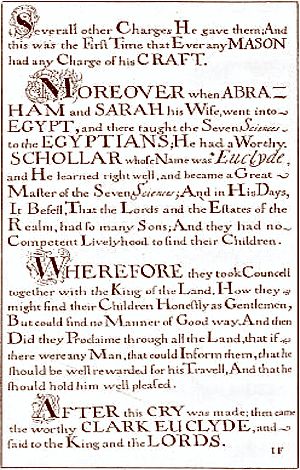 Severall other Charges He gave them; And
this was the First Time that Ever any MASON
had any Charge of his CRAFT.
MOREOVER when ABRA-
HAM and SARAH his Wife, went into
EGYPT, and there taught the Seven Sciences
to the EGYPTIANS; He had a Worthy
SCHOLLAR whose Name was Euclyde,
and He learned right well, and became a Great
Master of the Seven Sciences; And in His Days,
It Befell, That the Lords and the Estates of the
Realm, had so many Sons; And they had no
Competent Livelyhood to find their Children.
WHEREFORE they took Councell
together with the King of the Land, How they
might find their Children Honestly as Gentlemen,
But could find no Manner of Good way, And then
Did they Proclaime through all the Land, that if
there were any Man, that could Inform them, that he
should be well rewarded for his Travell, And that he
should hold him well pleased.
AFTER this CRY was made; then came
the worthy CLARK EUCLYDE, and
said to the King and the LORDS.
IF